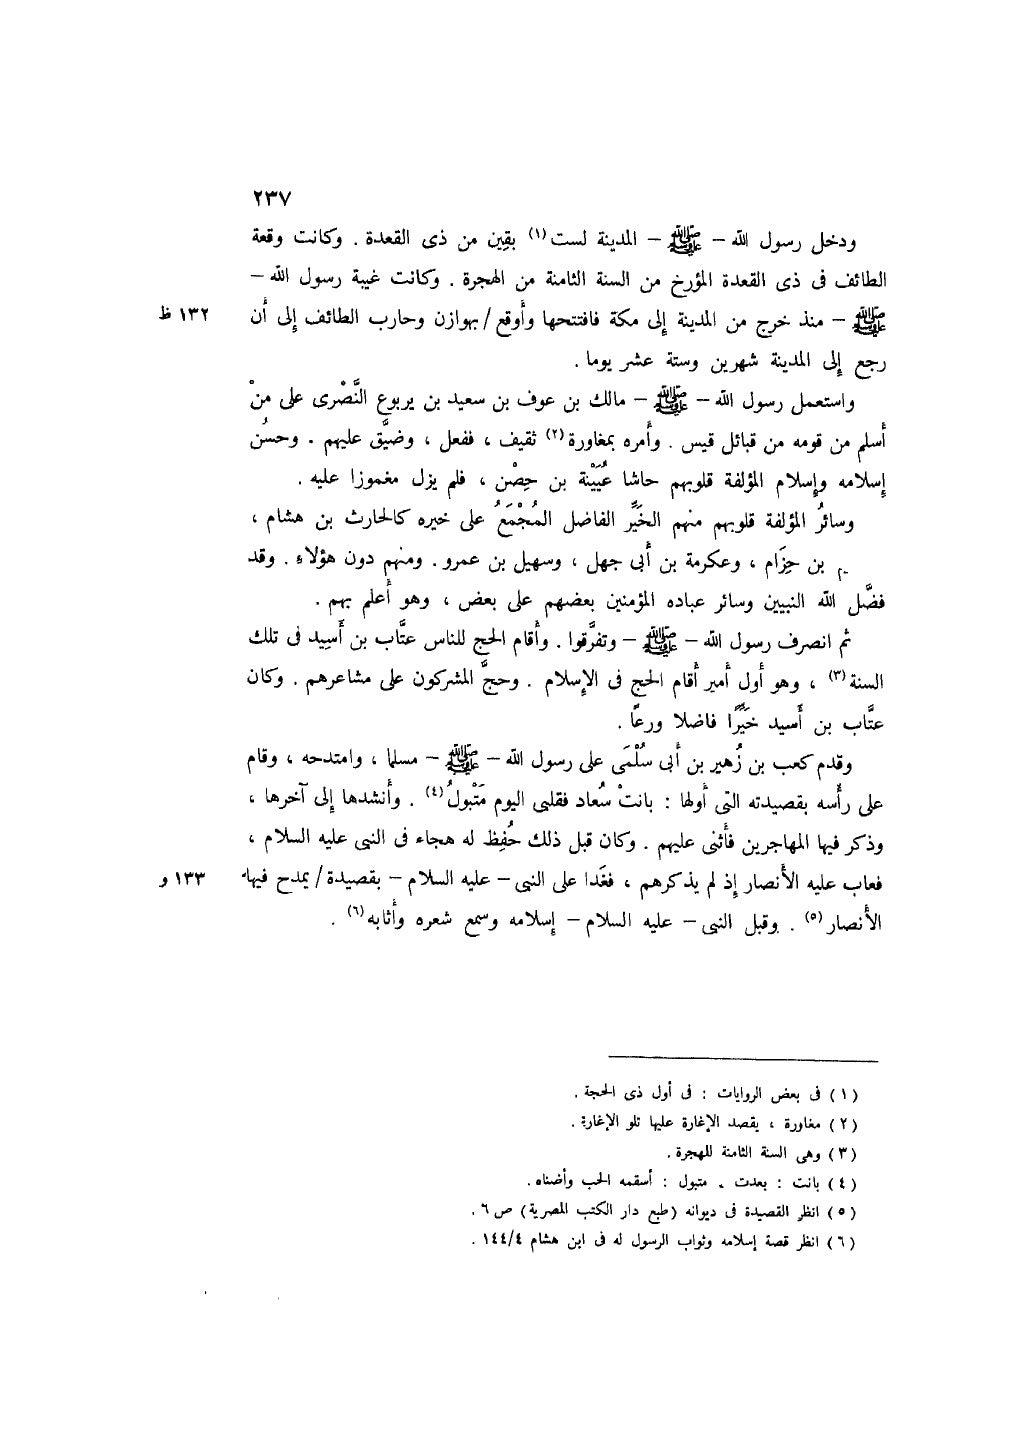 ٢٣٧
ودخل رسول الله – ﷺ – المدينة لست (١) بقِين من ذى القعدة . وكانت وقعة
الطائف فى ذى القعدة المؤرخ من السنة الثامنة من الهجرة . وكانت غيبة رسول الله –
ﷺ – منذ خرج من المدينة إلى مكة فافتتحها وأوقع / بهوازن وحارب الطائف إلى أن ١٣٢ ظ
رجع إلى المدينة شهرين وستة عشر يوما .
واستعمل رسول الله – ﷺ – مالك بن عوف بن سعيد بن يربوع النَّصْرى على منْ
أسلم من قومه من قبائل قيس . وأمره بمغاورة (٢) ثقيف ، ففعل ، وضيَّق عليهم . وحسُن
إسلامه وإسلام المؤلفة قلوبهم حاشا عُيَيْنة بن حِصْن ، فلم يزل مغموزا عليه .
وسائرُ المؤلفة قلوبهم منهم الخَيِّر الفاضل المُجْمَعُ على خيره كالحارث بن هشام ،
بن حِزَام ، وعكرمة بن أبى جهل ، وسهيل بن عمرو . ومنهم دون هؤلاء . وقد
فضَّل الله النبيين وسائر عباده المؤمنين بعضهم على بعض ، وهو أعلم بهم .
ثم انصرف رسول الله – ﷺ – وتفرَّقوا . وأقام الحج للناس عتَّاب بن أَسِيد فى تلك
السنة (٣) ، وهو أول أمير أقام الحج فى الإسلام . وحجَّ المشركون على مشاعرهم . وكان
عتَّاب بن أَسيد خَيِّرًا فاضلا ورعًا .
وقدم كعب بن زُهير بن أبى سُلْمَى على رسول الله – ﷺ – مسلما ، وامتدحه ، وقام
على رأسه بقصيدته التى أولها : بانتْ سُعاد فقلبى اليوم مَتْبولُ (٤) . وأنشدها إلى آخرها ،
وذكر فيها المهاجرين فأثنى عليهم . وكان قبل ذلك حُفِظ له هجاء فى النبى عليه السلام ،
فعاب عليه الأنصار إذ لم يذكرهم ، فغَدا على النبى – عليه السلام – بقصيدة / يمدح فيها ١٣٣ و
الأنصار (٥) . وقبل النبى – عليه السلام – إسلامه وسمع شعره وأثابه (٦) .
(١) فى بعض الروايات : فى أول ذى الحجة .
(٢) مغاورة ، يقصد الإغارة عليها تلو الإغارة .
(٣) وهى السنة الثامنة للهجرة .
(٤) بانت : بعدت . متبول : أسقمه الحب وأضناه .
(٥) انظر القصيدة فى ديوانه (طبع دار الكتب المصرية) ص ٦ .
(٦) انظر قصة إسلامه وثواب الرسول له فى ابن هشام ١٤٤/٤ .